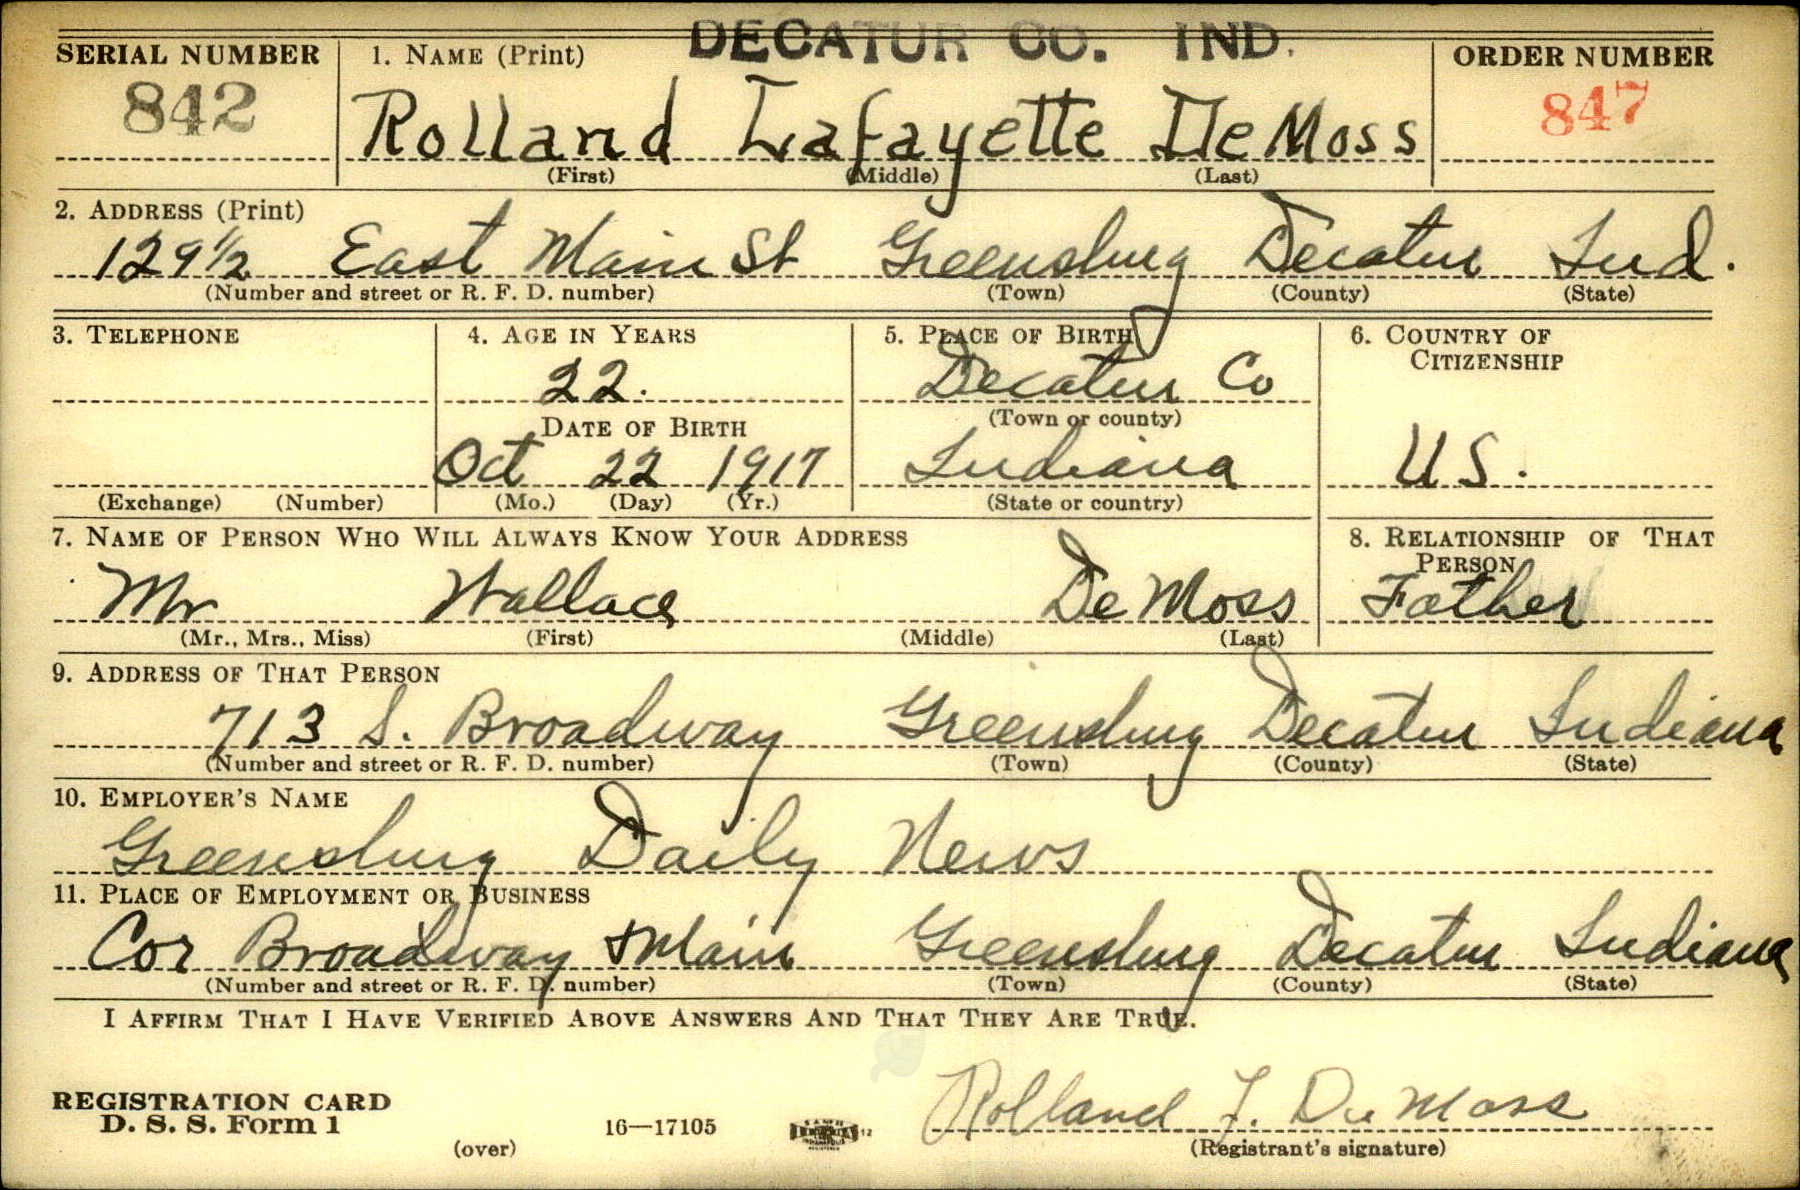 DECATUR CO. IND.
SERIAL NUMBER 1. NAME (Print) ORDER NUMBER
842 Rolland Lafayette DeMoss 847
(First) (Middle) (Last)
2. ADDRESS (Print)
129 1/2 East Main St Greensburg Decatur Ind.
(Number and street or R. F. D. number) (Town) (County) (State)
3. TELEPHONE 4. AGE IN YEARS 5. PLACE OF BIRTH 6. COUNTRY OF
CITIZENSHIP
22. Decatur Co
DATE OF BIRTH (Town or county)
Oct 22 1917 Indiana U S.
(Exchange) (Number) (Mo.) (Day) (Yr.) (State or country)
7. NAME OF PERSON WHO WILL ALWAYS KNOW YOUR ADDRESS 8. RELATIONSHIP OF THAT
PERSON
Mr Wallace De Moss Father
(Mr., Mrs., Miss) (First) (Middle) (Last)
9. ADDRESS OF THAT PERSON
713 S. Broadway Greensburg Decatur Indiana
(Number and street or R. F. D. number) (Town) (County) (State)
10. EMPLOYER'S NAME
Greensburg Daily News
11. PLACE OF EMPLOYMENT OR BUSINESS
Cor Broadway + Main Greensburg Decatur Indiana
(Number and street or R. F. D. number) (Town) (County) (State)
I AFFIRM THAT I HAVE VERIFIED ABOVE ANSWERS AND THAT THEY ARE TRUE.
Rolland L. De Moss
REGISTRATION CARD
D. S. S. Form 1
(over) 16—17105 12 (Registrant's signature)